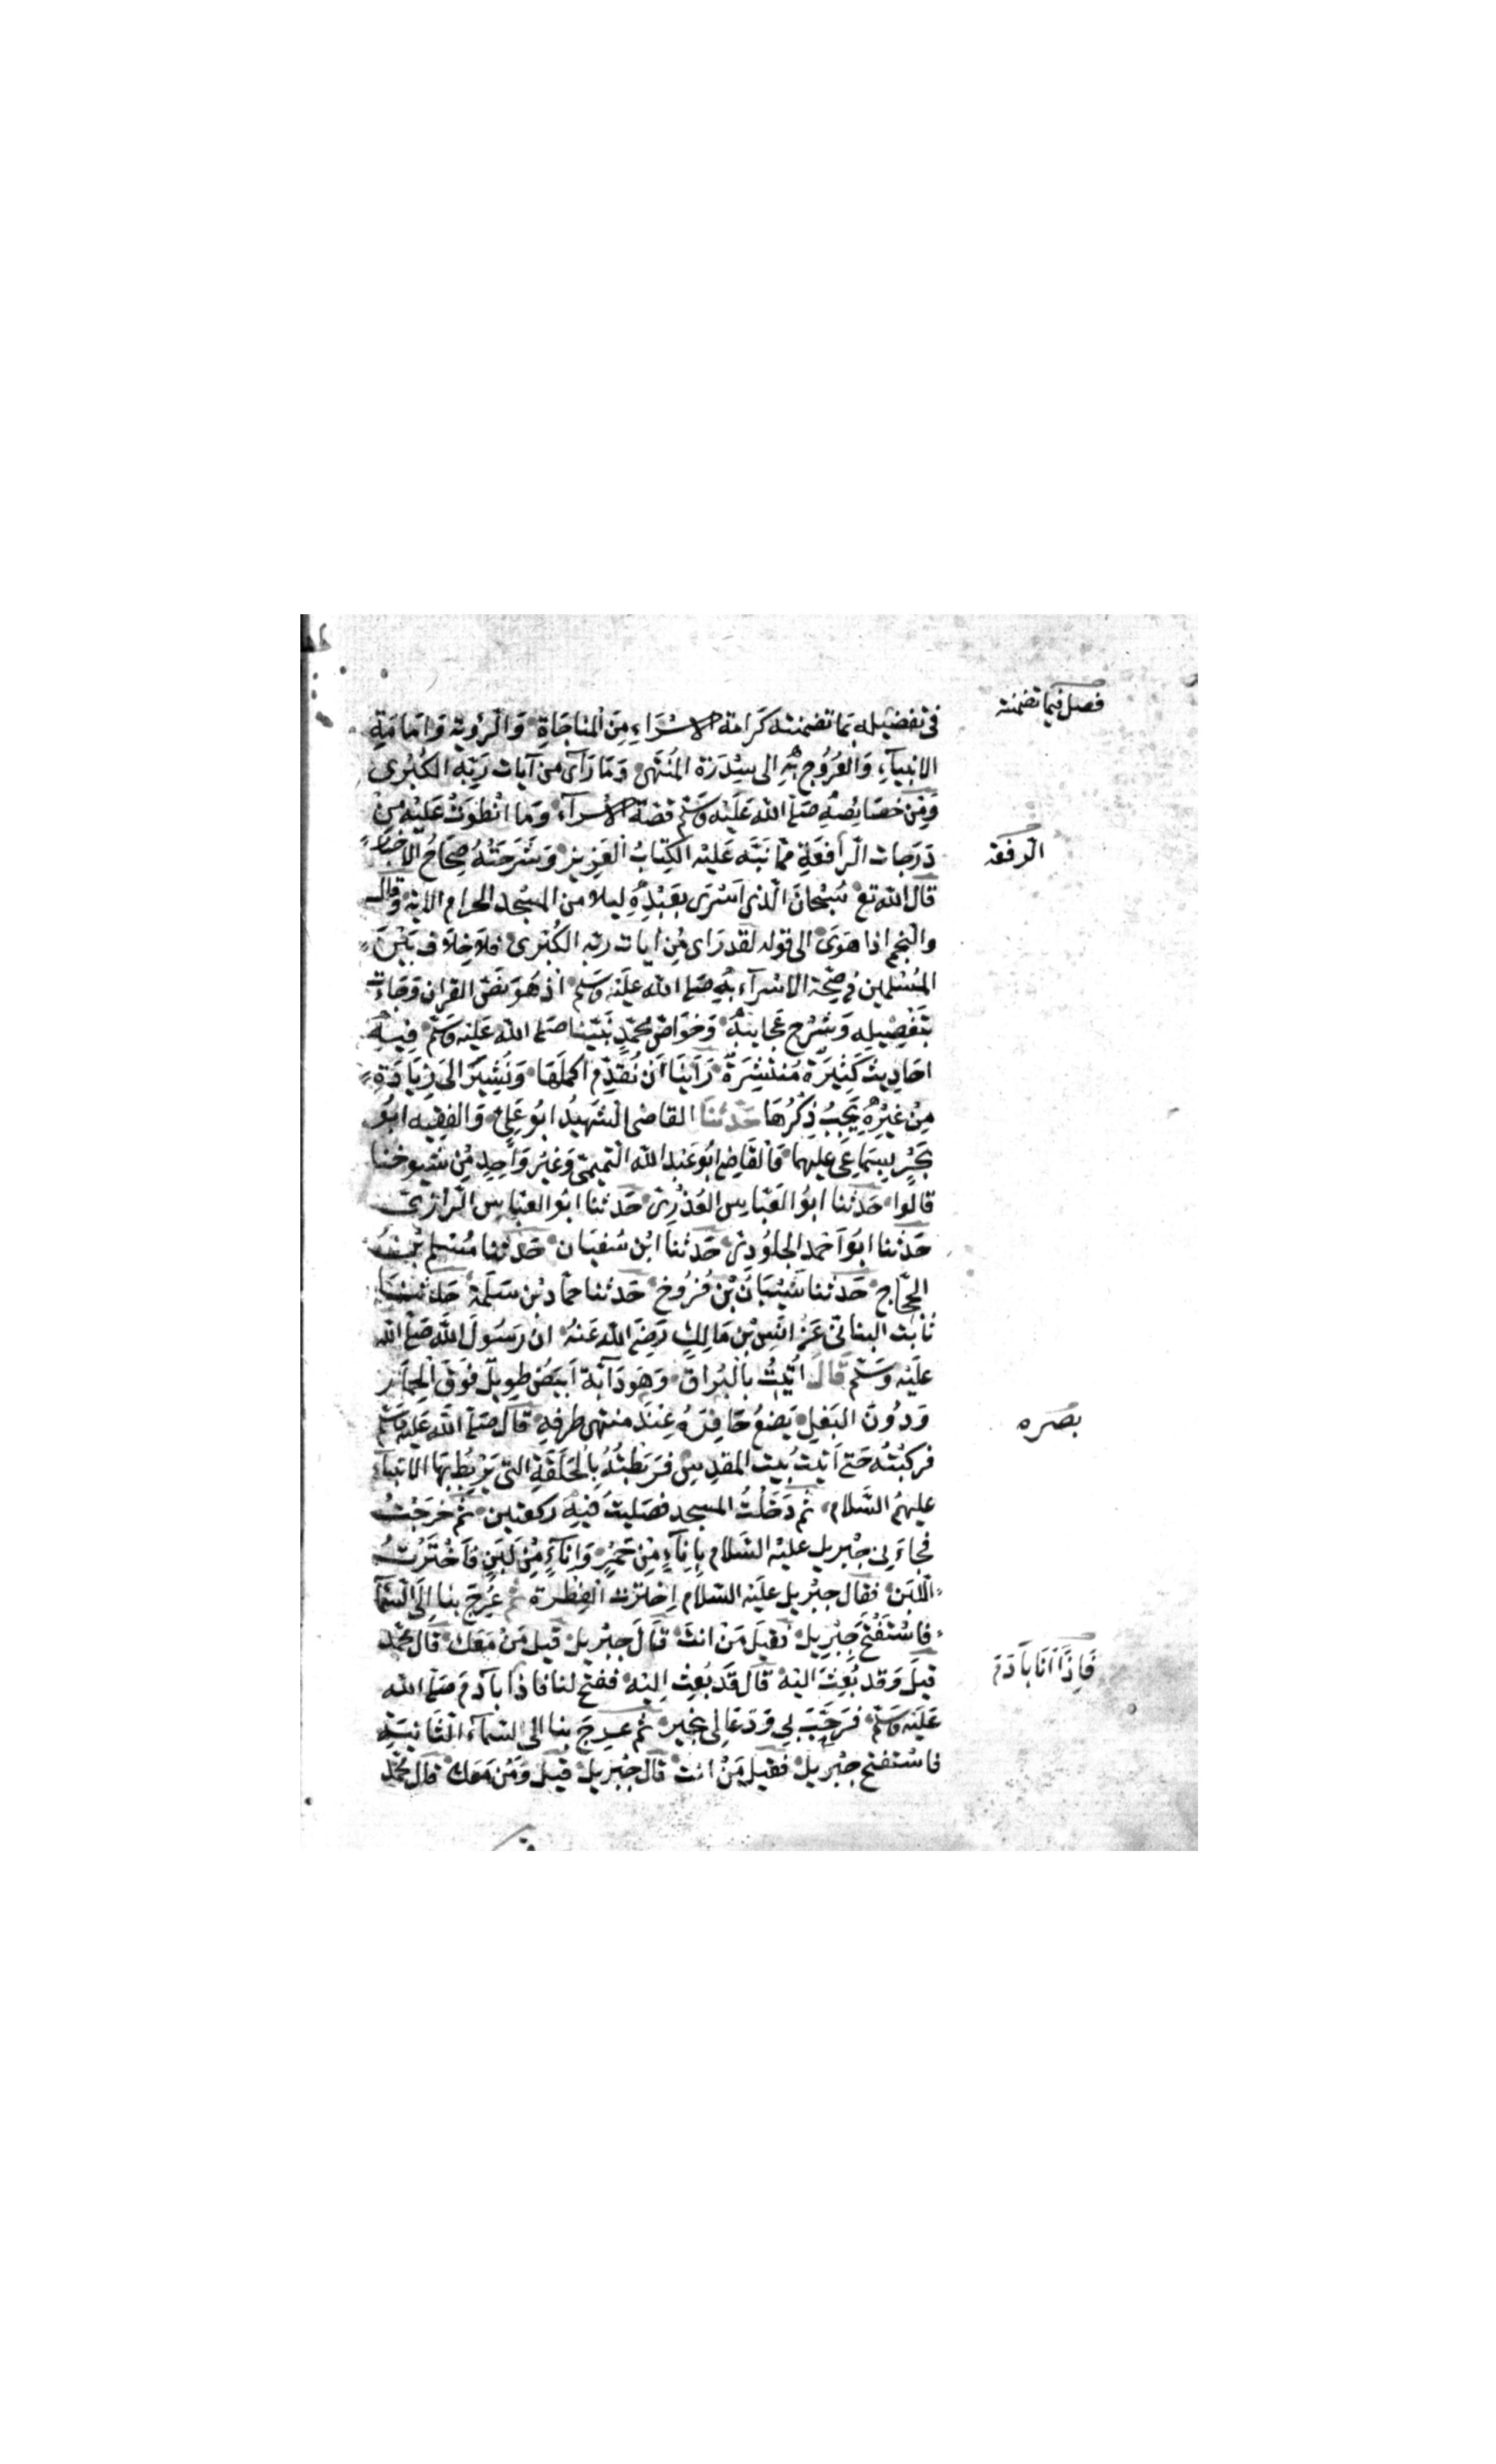 فصل فيما تضمنته
في تفضيله بما تضمنته كرامة الاسراء من المناجاة والرؤية وامامة
الانبياء والعروج به الى سدرة المنتهى وما رآى من آيات ربه الكبرى
ومن خصائصه صلى الله عليه وسلم قصة الاسراء وما انطوت عليه من
درجات الرافعة مما نبه عليه الكتاب العزيز وشرحته صحاح الاخبار
الرفعة
قال الله تع سبحان الذي اسرى بعبده ليلا من المسجد الحرام الاية وقال
والنجم اذا هوى الى قوله لقد راى من ايات ربه الكبرى فلا خلاف بين
المسلمين في صحة الاسراء به صلى الله عليه وسلم اذ هو نص القران وجاءت
بتفصيله وشرح عجايبه وخواص محمد نبينا صلى الله عليه وسلم فيه
احاديث كثيرة منتشرة راينا ان نقدم اكملها ونشير الى زيادة
من غيره يجب ذكرها حدثنا القاضي الشهيد ابو علي والفقيه ابو
بحر بسماعي عليهما والقاضي ابو عبد الله التميمي وغير واحد من شيوخنا
قالوا حدثنا ابو العباس العذري حدثنا ابو العباس الرازي
حدثنا ابو احمد الجلودي حدثنا ابن سفيان حدثنا مسلم بن
الحجاج حدثنا شيبان بن فروخ حدثنا حماد بن سلمة حدثنا
ثابت البناني عن انس بن مالك رضي الله عنه ان رسول الله صلى الله
عليه وسلم قال اتيت بالبراق وهو دآبة ابيض طويل فوق الحمار
ودون البغل يضع حافره عند منتهى طرفه قال صلى الله عليه وسلم
بصره
فركبته حتى اتيت بيت المقدس فربطته بالحلقة التي يربط بها الانبياء
عليهم السلام ثم دخلت المسجد فصليت فيه ركعتين ثم خرجت
فجاءني جبريل عليه السلام باناء من خمر واناء من لبن فاخترت
اللبن فقال جبريل عليه السلام اخترت الفطرة ثم عرج بنا الى السما
فاستفتح جبريل فقيل من انت قال جبريل قيل من معك قال محمد
قيل وقد بعث اليه قال قد بعث اليه ففتح لنا فاذا بآدم صلى الله
فاذا انا بآدم
عليه وسلم فرحب بي ودعا لي بخير ثم عرج بنا الى السماء الثانية
فاستفتح جبريل فقيل من انت قال جبريل قيل ومن معك قال محمد